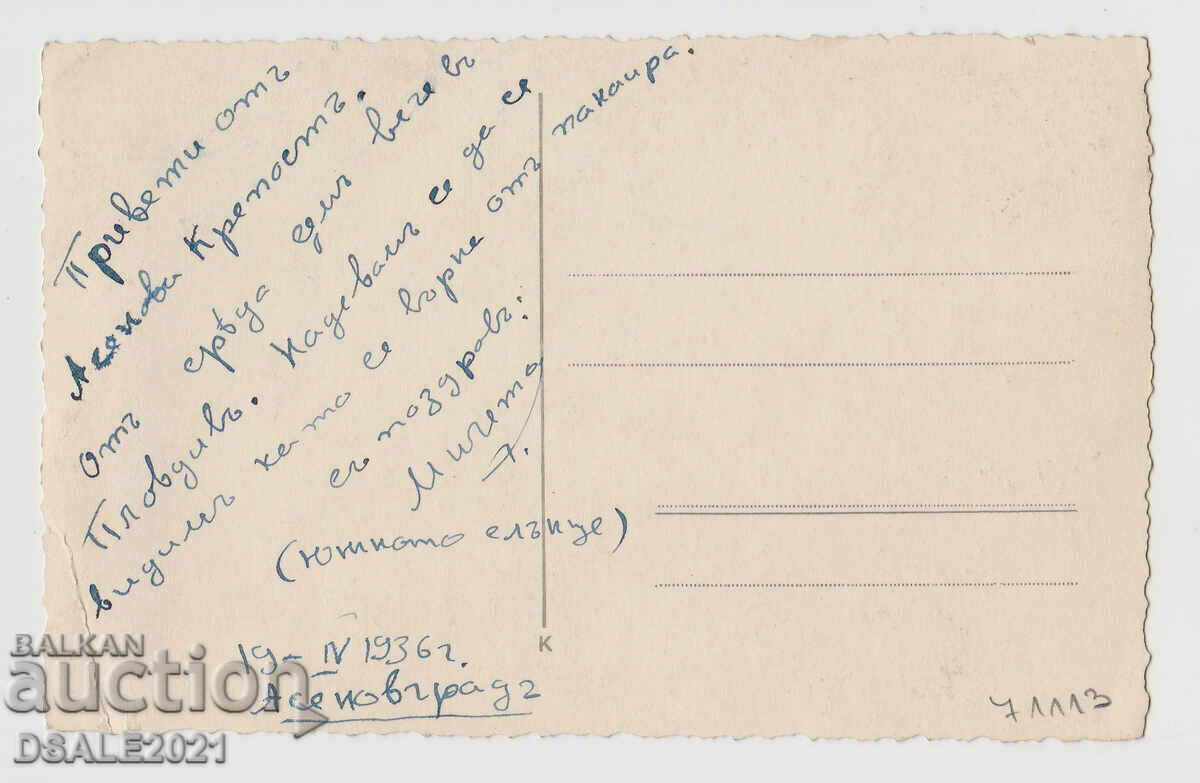 Привети отъ
Асенова Крепость.
отъ срѣда съмъ вечевъ
Пловдивъ. Надевамъ се да се
видимъ като се върне отъ
съ поздравъ:
Мичето
(южното слънце)
19-IV 1936 г.
Асеновградъ
K
71113
BALKAN
auction
DSALE2021